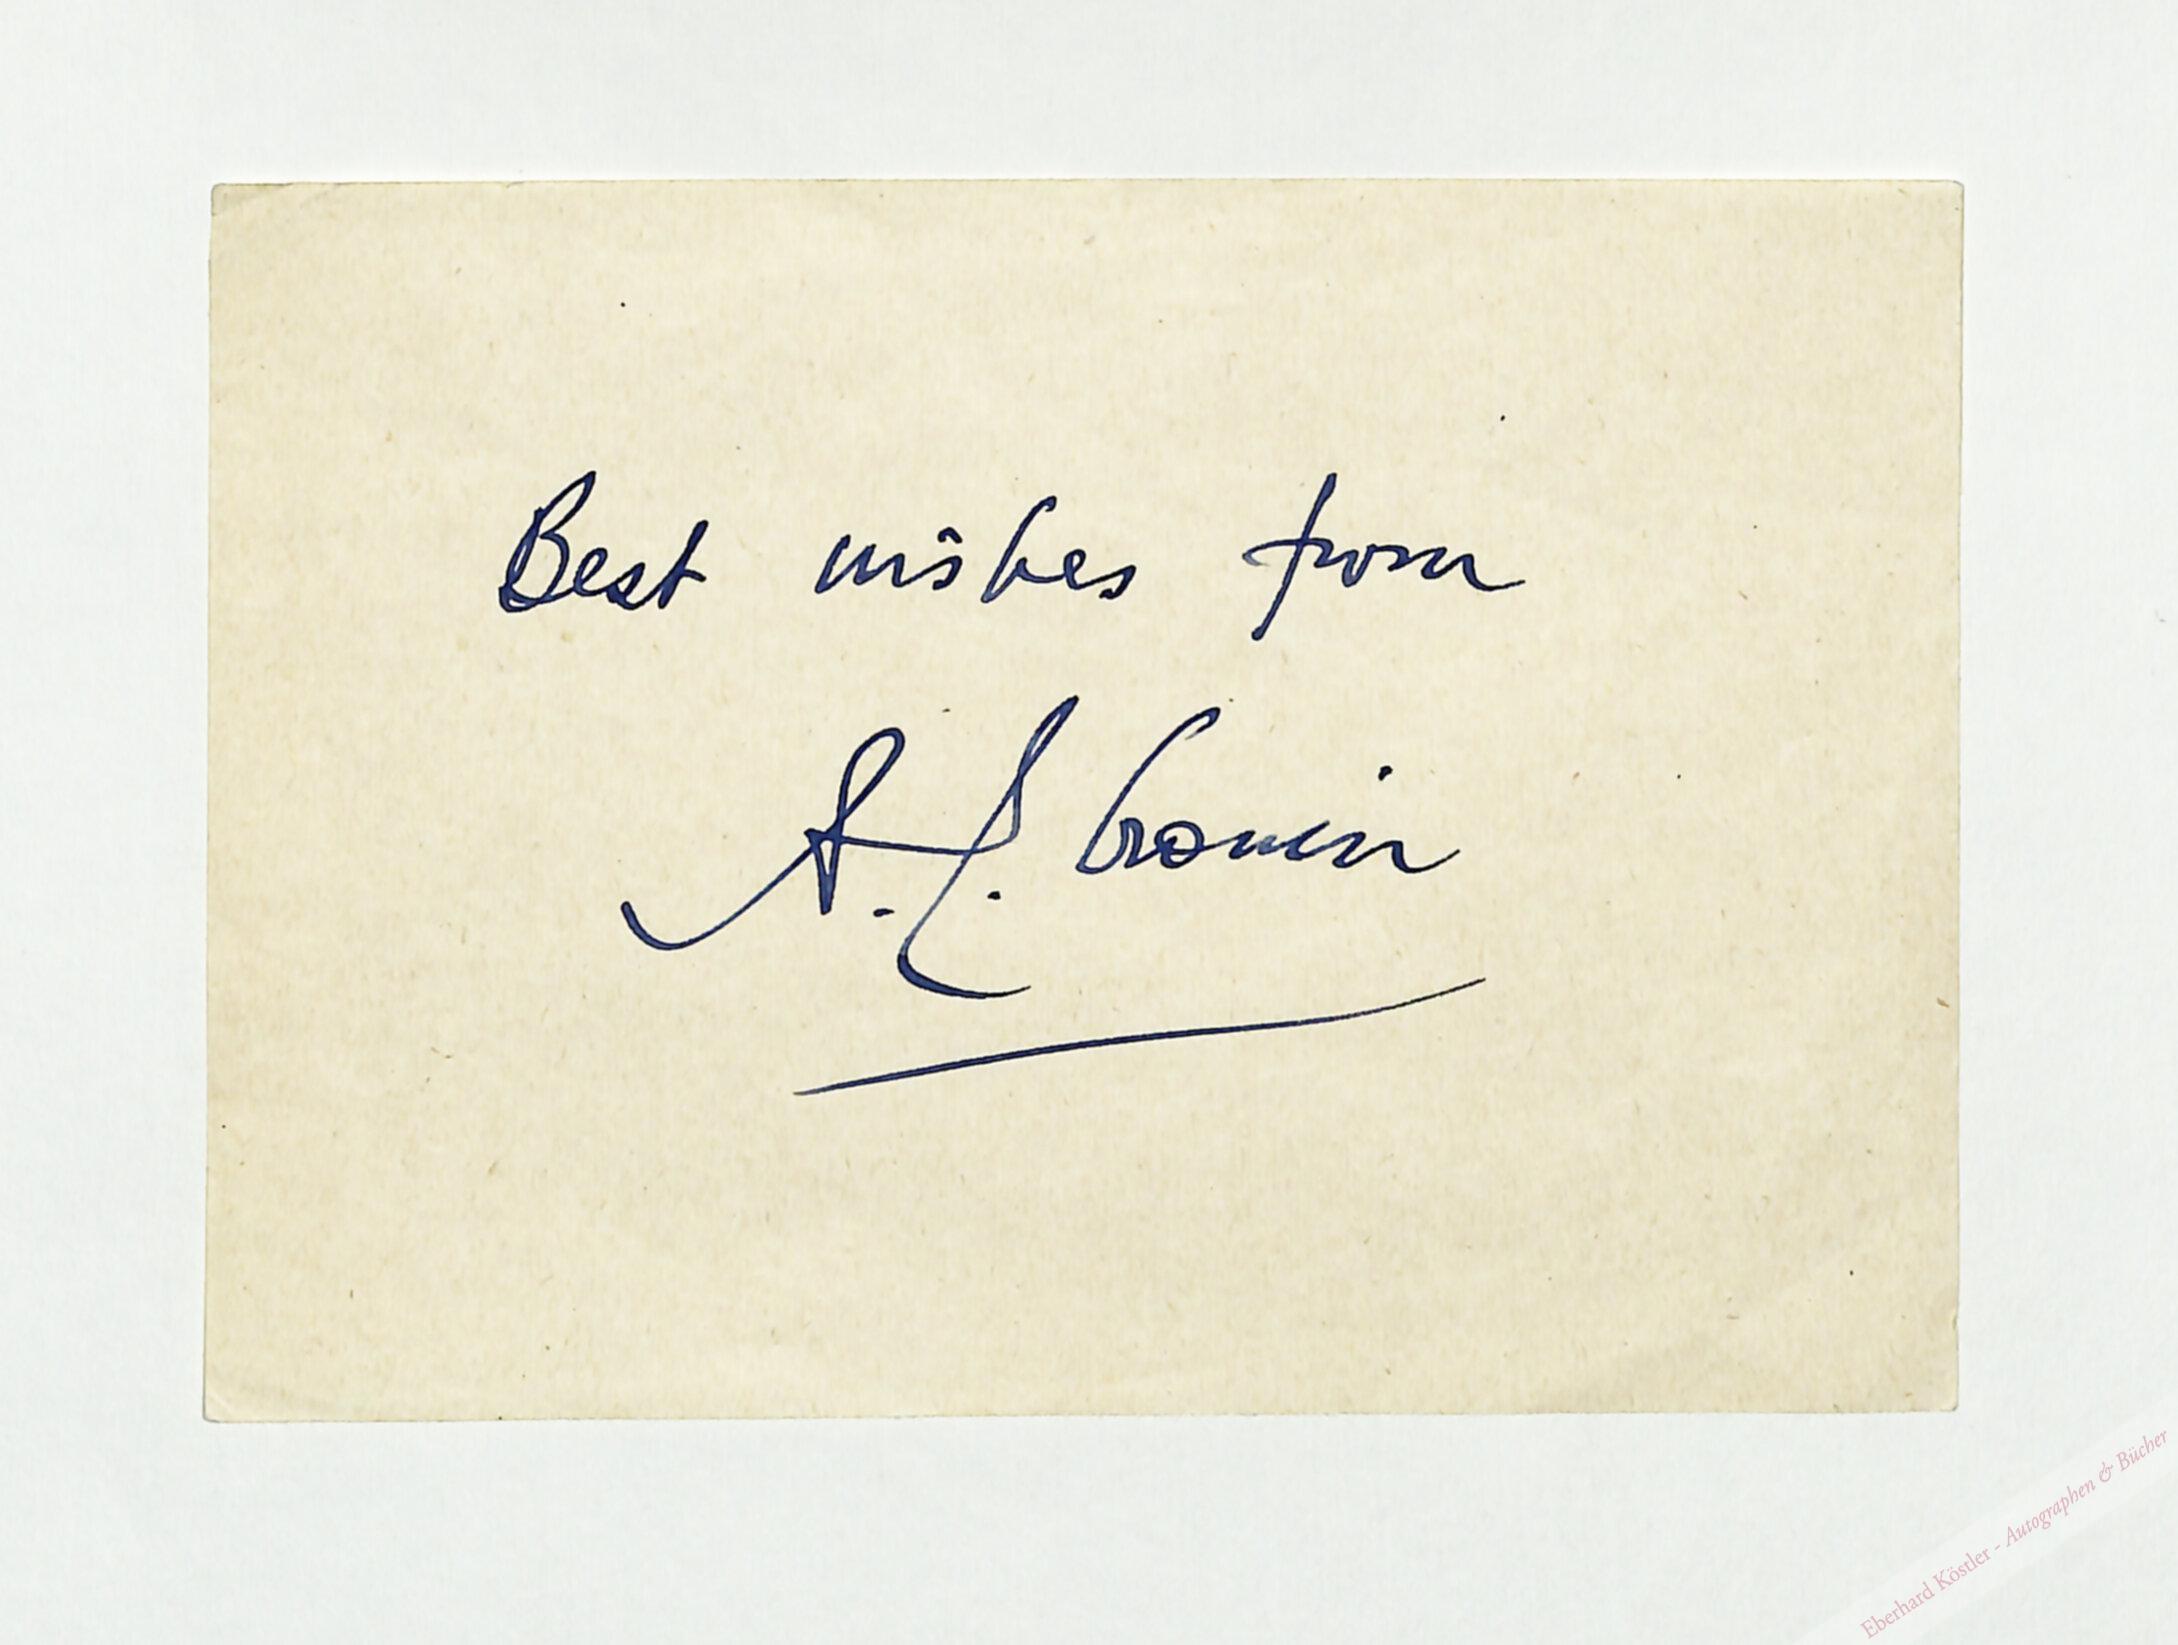 Best wishes from
A. J. Cronin
Eberhard Köstler - Autographen & Bücher